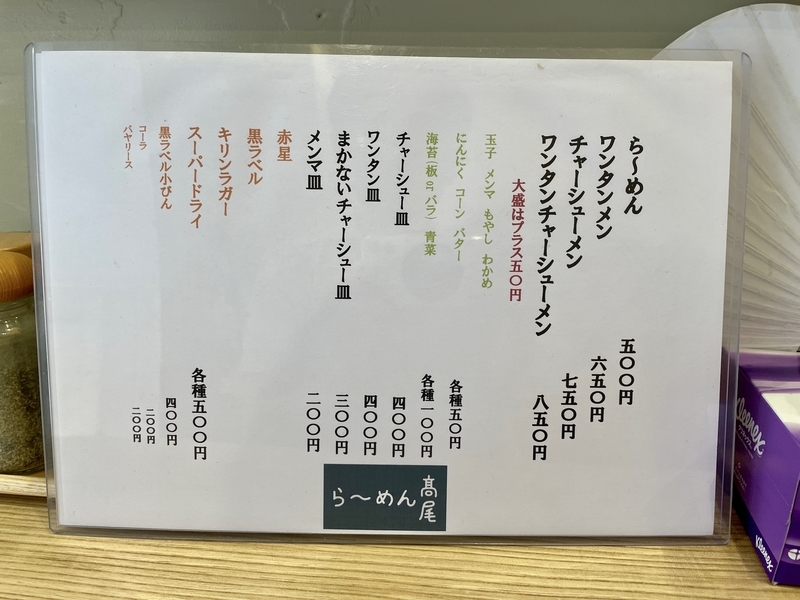 ら〜めん 五〇〇円
ワンタンメン 六五〇円
チャーシューメン 七五〇円
ワンタンチャーシューメン 八五〇円
大盛はプラス五〇円
玉子 メンマ もやし わかめ
にんにく コーン バター 各種五〇円
海苔(板orバラ) 青菜 各種一〇〇円
チャーシュー皿 四〇〇円
ワンタン皿 四〇〇円
まかないチャーシュー皿 三〇〇円
メンマ皿 二〇〇円
赤星
黒ラベル
キリンラガー
スーパードライ 各種五〇〇円
黒ラベル小びん 四〇〇円
コーラ 二〇〇円
バヤリース 二〇〇円
ら〜めん 髙尾
Kleenex
Kleenex